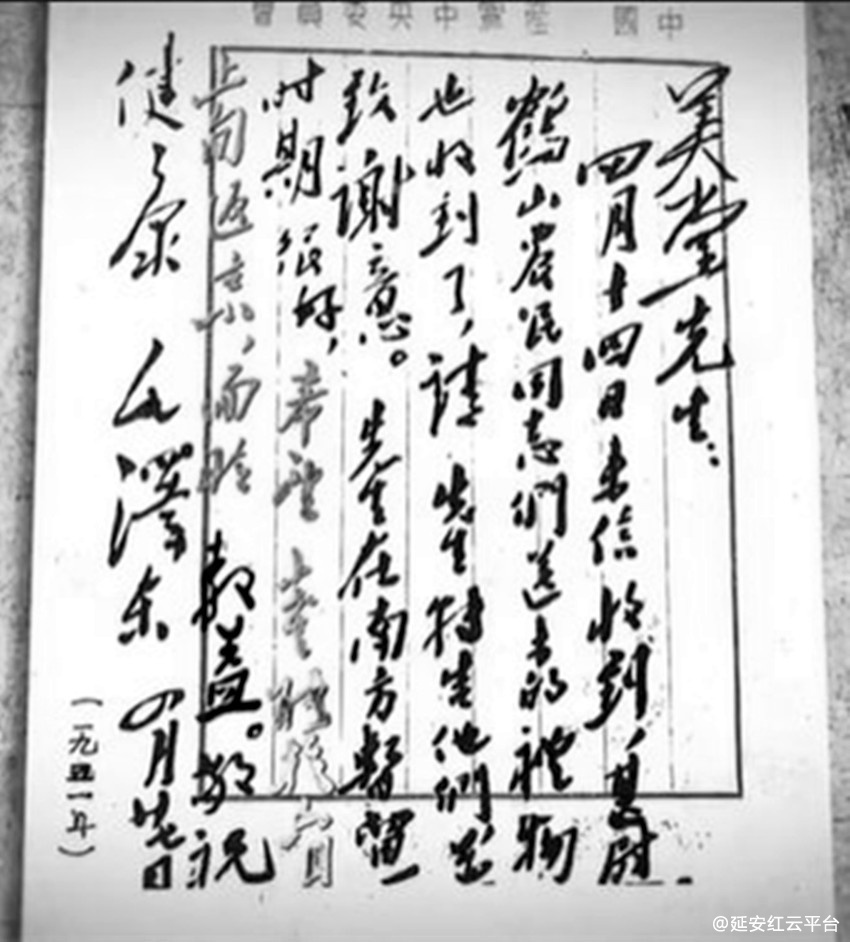 中國 產黨中央委員會
美堂先生：
四月十四日来信收到，甚慰
鶴山農民同志們送来的禮物
也收到了，請 先生轉告他們並
致謝意。 先生在南方暫留一
时期很好，希望 能於六月
上旬返京，面聆 教益。敬祝
健康 毛澤东 四月廿七日
（一九五一年）
@延安红云平台